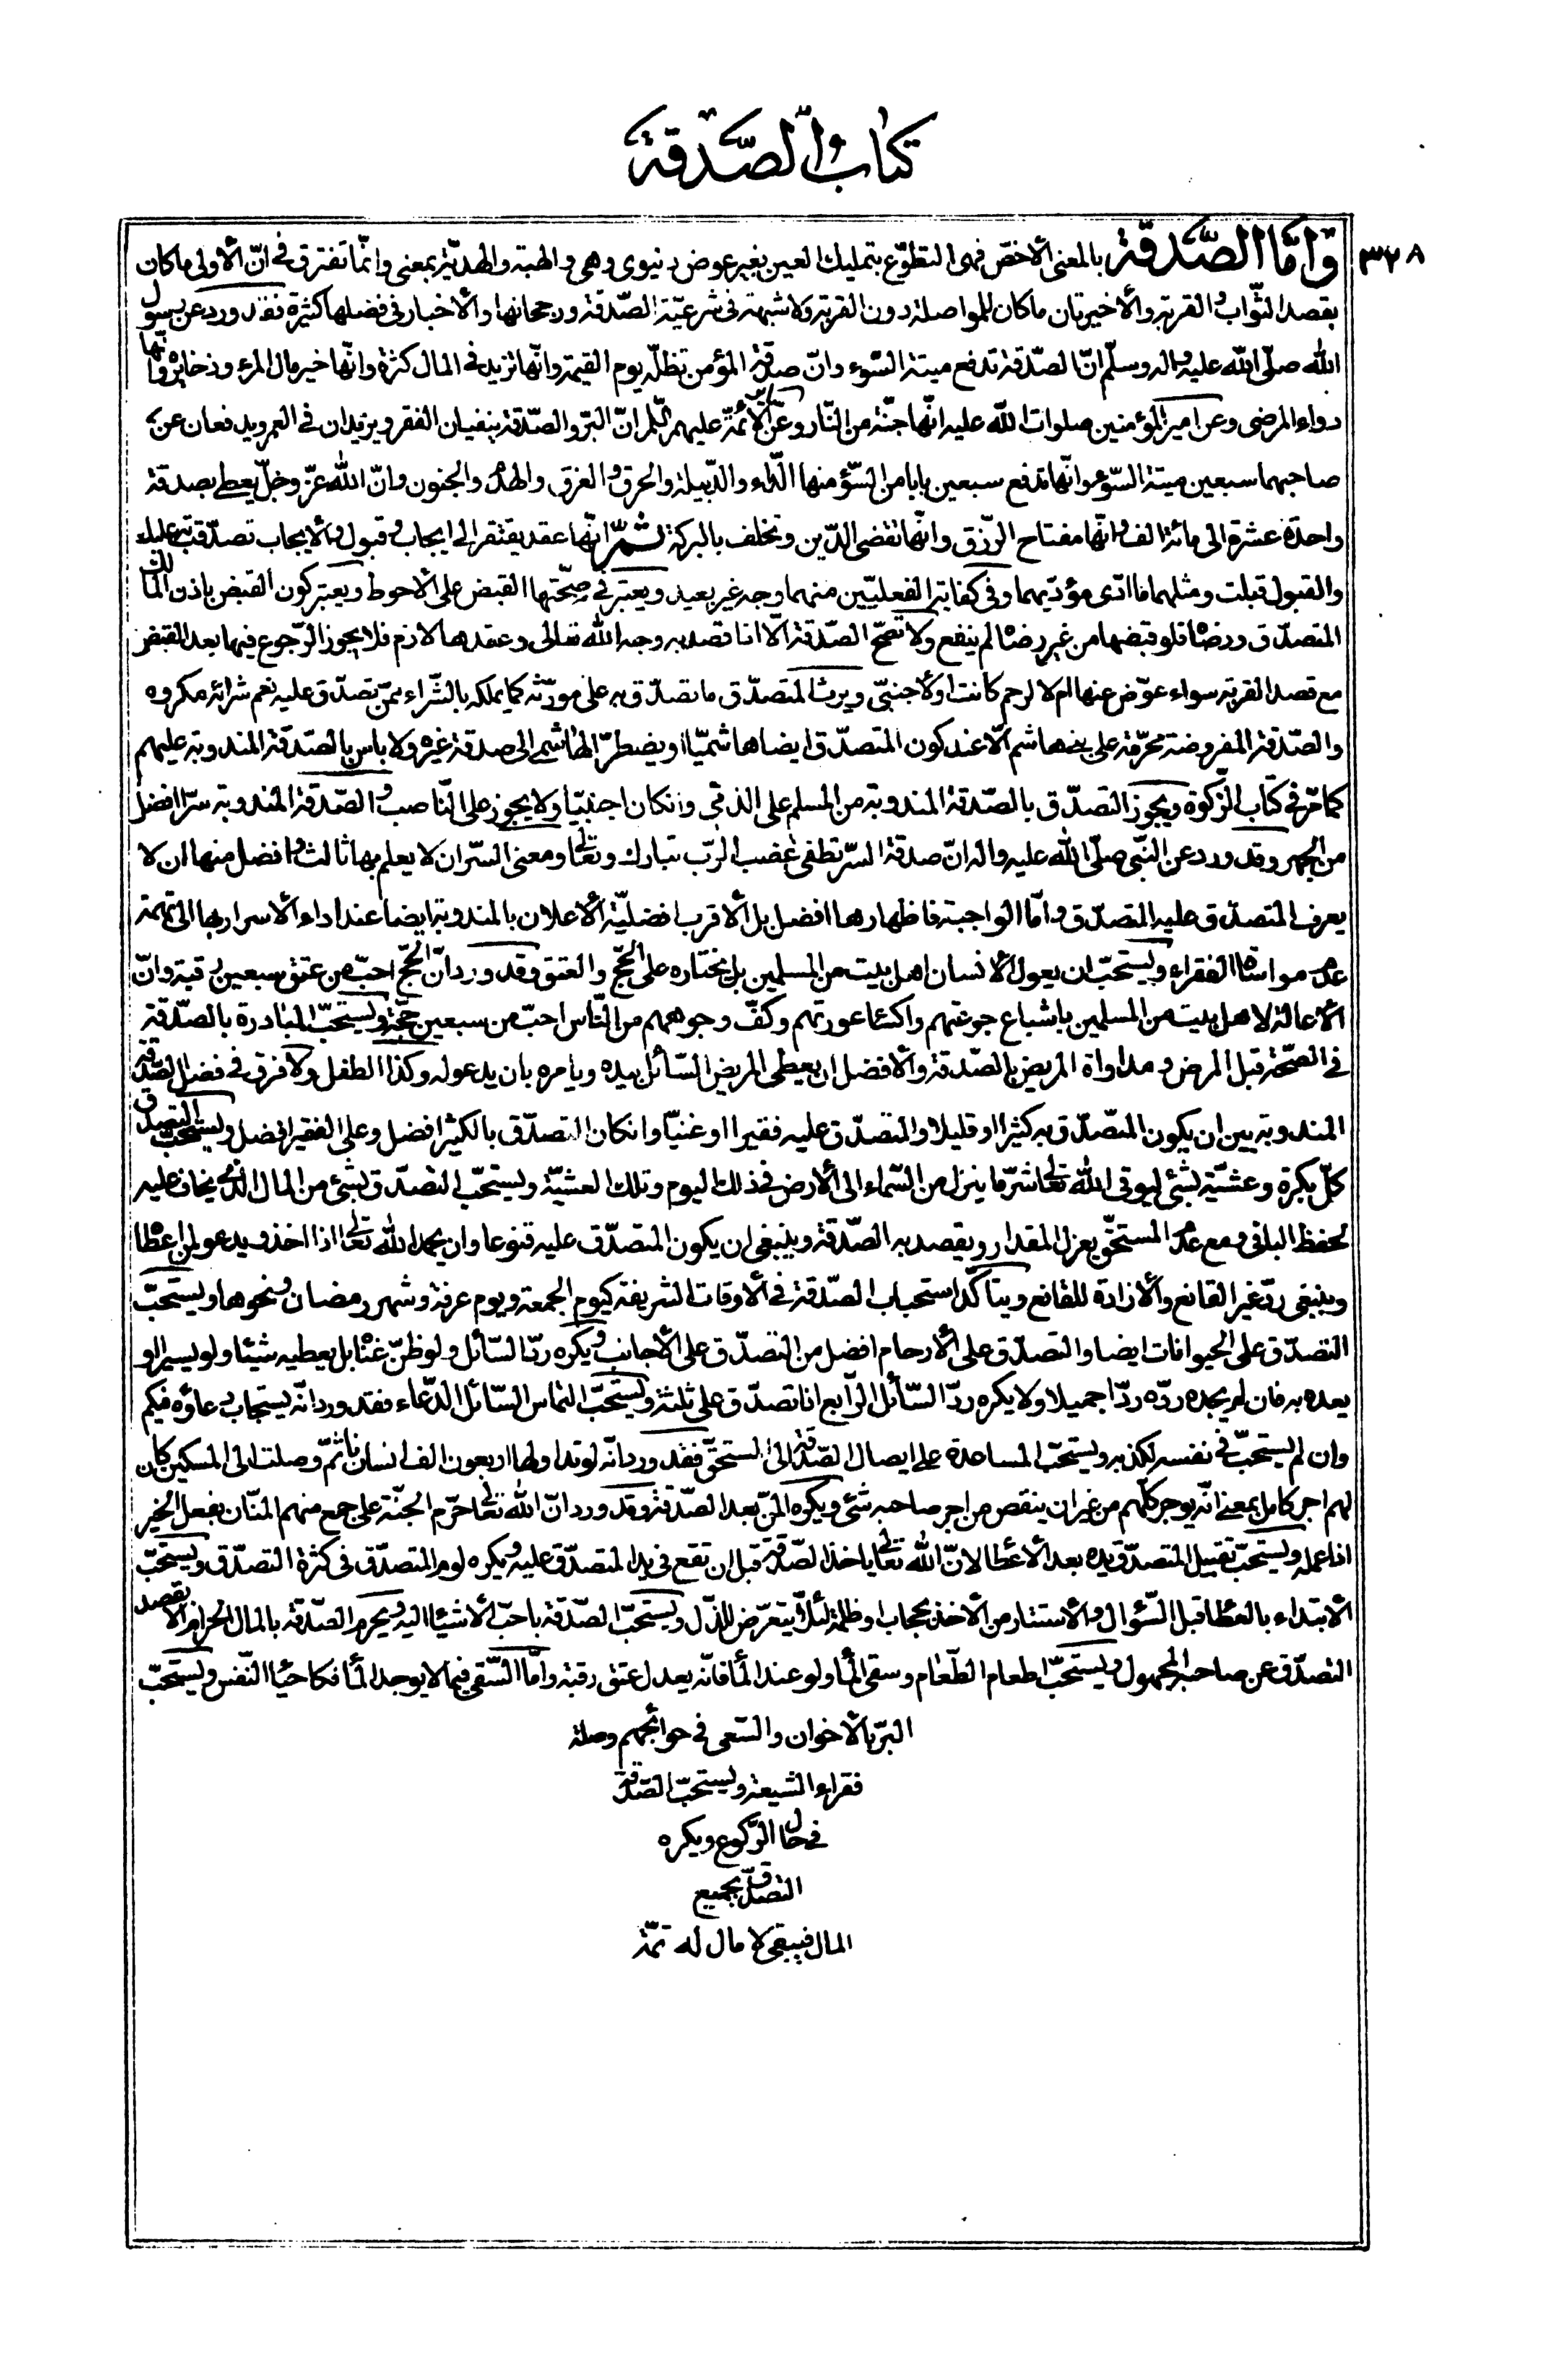 كتاب الصّدقة
٣٢٨
وامّا الصّدقة بالمعنى الأخصّ فهى التطوّع بتمليك العين بغير عوض دنيوى وهى والهبة والهديّة بمعنى وانّما تفترق فى انّ الأولى ما كان
بقصد الثّواب والقربة والأخيرتان ما كان للمواصلة دون القربة ولا شبهة فى شرعيّة الصّدقة ورجحانها والأخبار فى فضلها كثيرة فقد ورد عن رسول
الله صلّى الله عليه واله وسلّم انّ الصّدقة تدفع ميتة السّوء وانّ صدقة المؤمن تظلّه يوم القيمة وانّها تزيد فى المال كثرة وانّها خير مال المرء وذخايره وانّها
دواء المرضى وعن امير المؤمنين صلوات الله عليه انّها جنّة من النّار وعن الأئمّة عليهم السّلام انّ البرّ والصّدقة ينفيان الفقر ويزيدان فى العمر ويدفعان عن
صاحبهما سبعين ميتة السّوء وانّها تدفع سبعين بابا من السّوء منها الدّاء والدّبيلة والحرق والغرق والهدم والجنون وانّ الله عزّ وجلّ يعطى بصدقة
واحدة عشرة الى مائة الف وانّها مفتاح الرّزق وانّها تقضى الدّين وتخلف بالبركة ثمّ انّها عقد يفتقر الى ايجاب وقبول والايجاب تصدّقت به عليك
والقبول قبلت ومثلهما ما ادّى مؤدّيهما وفى كفاية الفعليّين منهما وجه غير بعيد ويعتبر فى صحّتها القبض على الأحوط ويعتبر كون القبض باذن المالك
المتصدّق ورضاه فلو قبضها من غير رضاه لم ينفع ولا تصحّ الصّدقة الّا اذا قصد به وجه الله تعالى وعقدها لازم فلا يجوز الرّجوع فيها بعد القبض
مع قصد القربة سواء عوّض عنها ام لا لرحم كانت او لأجنبىّ ويرث المتصدّق ما تصدّق به على مورّثه كما يملكه بالشّراء ممّن تصدّق عليه نعم شرائه مكروه
والصّدقة المفروضة محرّمة على بنى هاشم الّا عند كون المتصدّق ايضا هاشميّا او يضطرّ الهاشمى الى صدقة غيره ولا باس بالصّدقة المندوبة عليهم
كما مرّ فى كتاب الزّكوة ويجوز التصدّق بالصّدقة المندوبة من المسلم على الذمّى وانكان اجنبيّا ولا يجوز على النّاصب والصّدقة المندوبة سرّا افضل
من الجهر وقد ورد عن النّبى صلّى الله عليه واله انّ صدقة السرّ تطفى غضب الرّب تبارك وتعالى ومعنى السّر ان لا يعلم بها ثالث وافضل منها ان لا
يعرف المتصدّق عليه المتصدّق وامّا الواجبة فاظهارها افضل بل الأقرب افضليّة الأعلان بالمندوبة ايضا عند اداء الأسرار بها الى تهمة
عدم مواساة الفقراء ويستحبّ ان يعول الأنسان اهل بيت من المسلمين بل يختاره على الحجّ والعتق وقد ورد انّ الحجّ احبّ من عتق سبعين رقبة وانّ
الأعالة لاهل بيت من المسلمين باشباع جوعتهم واكتساء عورتهم وكفّ وجوههم من النّاس احبّ من سبعين حجّة ويستحبّ المبادرة بالصّدقة
فى الصّحّة قبل المرض ومداواة المريض بالصّدقة والأفضل ان يعطى المريض السّائل بيده ويامره بان يدعو له وكذا الطفل ولا فرق فى فضل الصّدقة
المندوبة بين ان يكون المتصدّق به كثيرا او قليلا والمتصدّق عليه فقيرا او غنيّا وانكان التصدّق بالكثير افضل وعلى الفقير افضل ويستحبّ التصدّق
كلّ بكرة وعشيّة بشئ ليوقى الله تعالى شرّ ما ينزل من السّماء الى الأرض فى ذلك اليوم وتلك العشيّة ويستحبّ التصدّق بشئ من المال الّذى يخاف عليه
لحفظ الباقى ومع عدم المستحقّ يعزل المقدار ويقصد به الصّدقة وينبغى ان يكون المتصدّق عليه قنوعا وان يحمد الله تعالى اذا اخذ ويدعو لمن اعطاه
وينبغى ردّ غير القانع والأزادة للقانع ويتاكّد استحباب الصّدقة فى الأوقات الشريفة كيوم الجمعة ويوم عرفة وشهر رمضان ونحوها ويستحبّ
التصدّق على الحيوانات ايضا والتصدّق على الأرحام افضل من التصدّق على الأجانب ويكره ردّ السّائل ولو ظنّ غناه بل يعطيه شيئا ولو يسيرا او
يعده به فان لم يجده ردّه ردّا جميلا ولا يكره ردّ السّائل الرّابع اذا تصدّق على ثلثة ويستحبّ التماس السّائل الدّعاء فقد ورد انّه يستجاب دعاؤه فيكم
وان لم يستحبّ فى نفسه لكذبه ويستحبّ المساعدة على ايصال الصّدقة الى المستحقّ فقد ورد انّه لو تداولها اربعون الف انسان ثمّ وصلت الى المسكين كان
لهم اجر كامل بمعنى انّه يوجر كلّهم من غير ان ينقص من اجر صاحبه شئ ويكره المنّ بعد الصّدقة وقد ورد انّ الله تعالى حرّم الجنّة على جمع منهم المنّان بفعل الخير
اذا عمله ويستحبّ تقبيل المتصدّق يده بعد الأعطاء لانّ الله تعالى ياخذ الصّدقة قبل ان تقع فى يد المتصدّق عليه ويكره لوم المتصدّق فى كثرة التصدّق ويستحبّ
الأبتداء بالعطاء قبل السّؤال والأستتار من الأخذ بحجاب او ظلمة لئلّا يتعرّض للذّل ويستحبّ الصّدقة باحبّ الأشياء اليه ويحرم الصّدقة بالمال الحرام الّا بقصد
التصدّق عن صاحبه المجهول ويستحبّ اطعام الطّعام وسقى الماء ولو عند الماء فانّه يعدل عتق رقبة وامّا السّقى فيما لا يوجد الماء فكاحياء النّفس ويستحبّ
البرّ بالأخوان والسّعى فى حوائجهم وصلة
فقراء الشيعة ويستحبّ الصّدقة
فى حال الرّكوع ويكره
التصدّق بجميع
المال فيبقى لا مال له تمّت